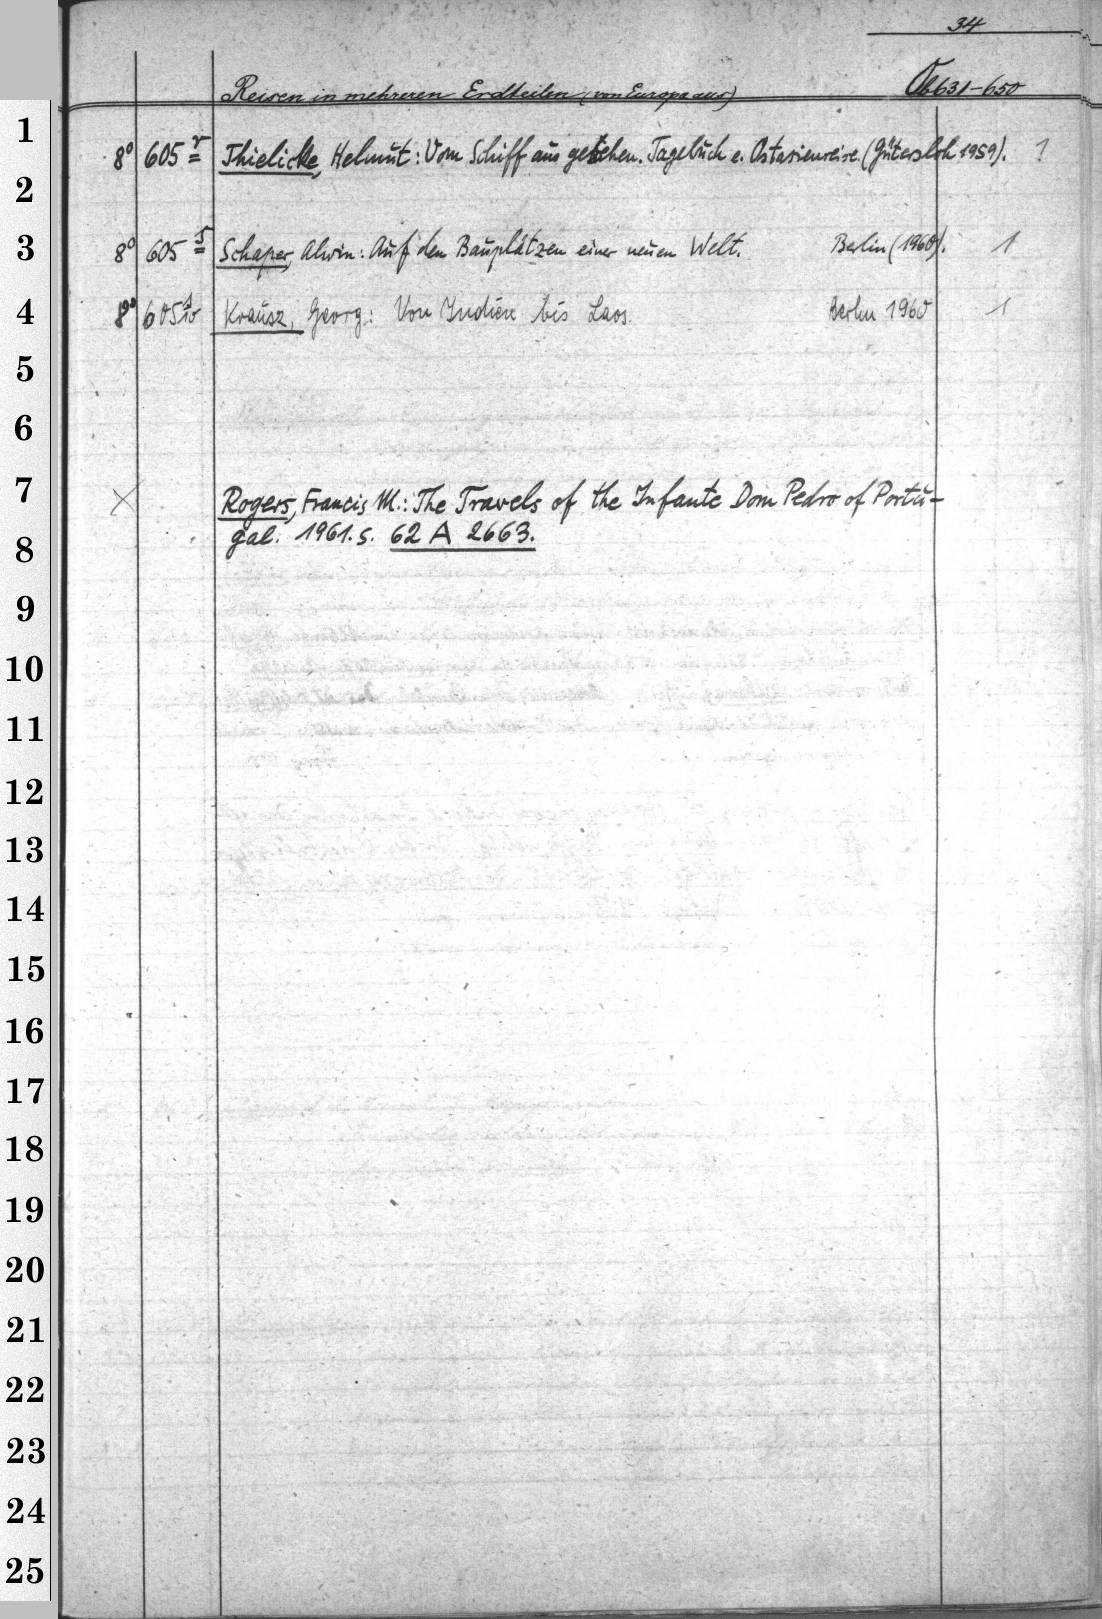 34
Reisen in mehreren Erdteilen (von Europa aus) Ob 631-650
1
8° 605 r Thielicke, Helmut: Vom Schiff aus gesehen. Tagebuch e. Ostasienreise. (Gütersloh 1959). 1
2
3
8° 605 s Schaper, Alwin: Auf den Bauplätzen einer neuen Welt. Berlin (1960). 1
4
8° 605 Krausz, Georg: Von Indien bis Laos. Berlin 1960 1
5
6
7
Rogers, Francis M.: The Travels of the Infante Dom Pedro of Portu-
8
gal. 1961. s. 62 A 2663.
9
10
11
12
13
14
15
16
17
18
19
20
21
22
23
24
25